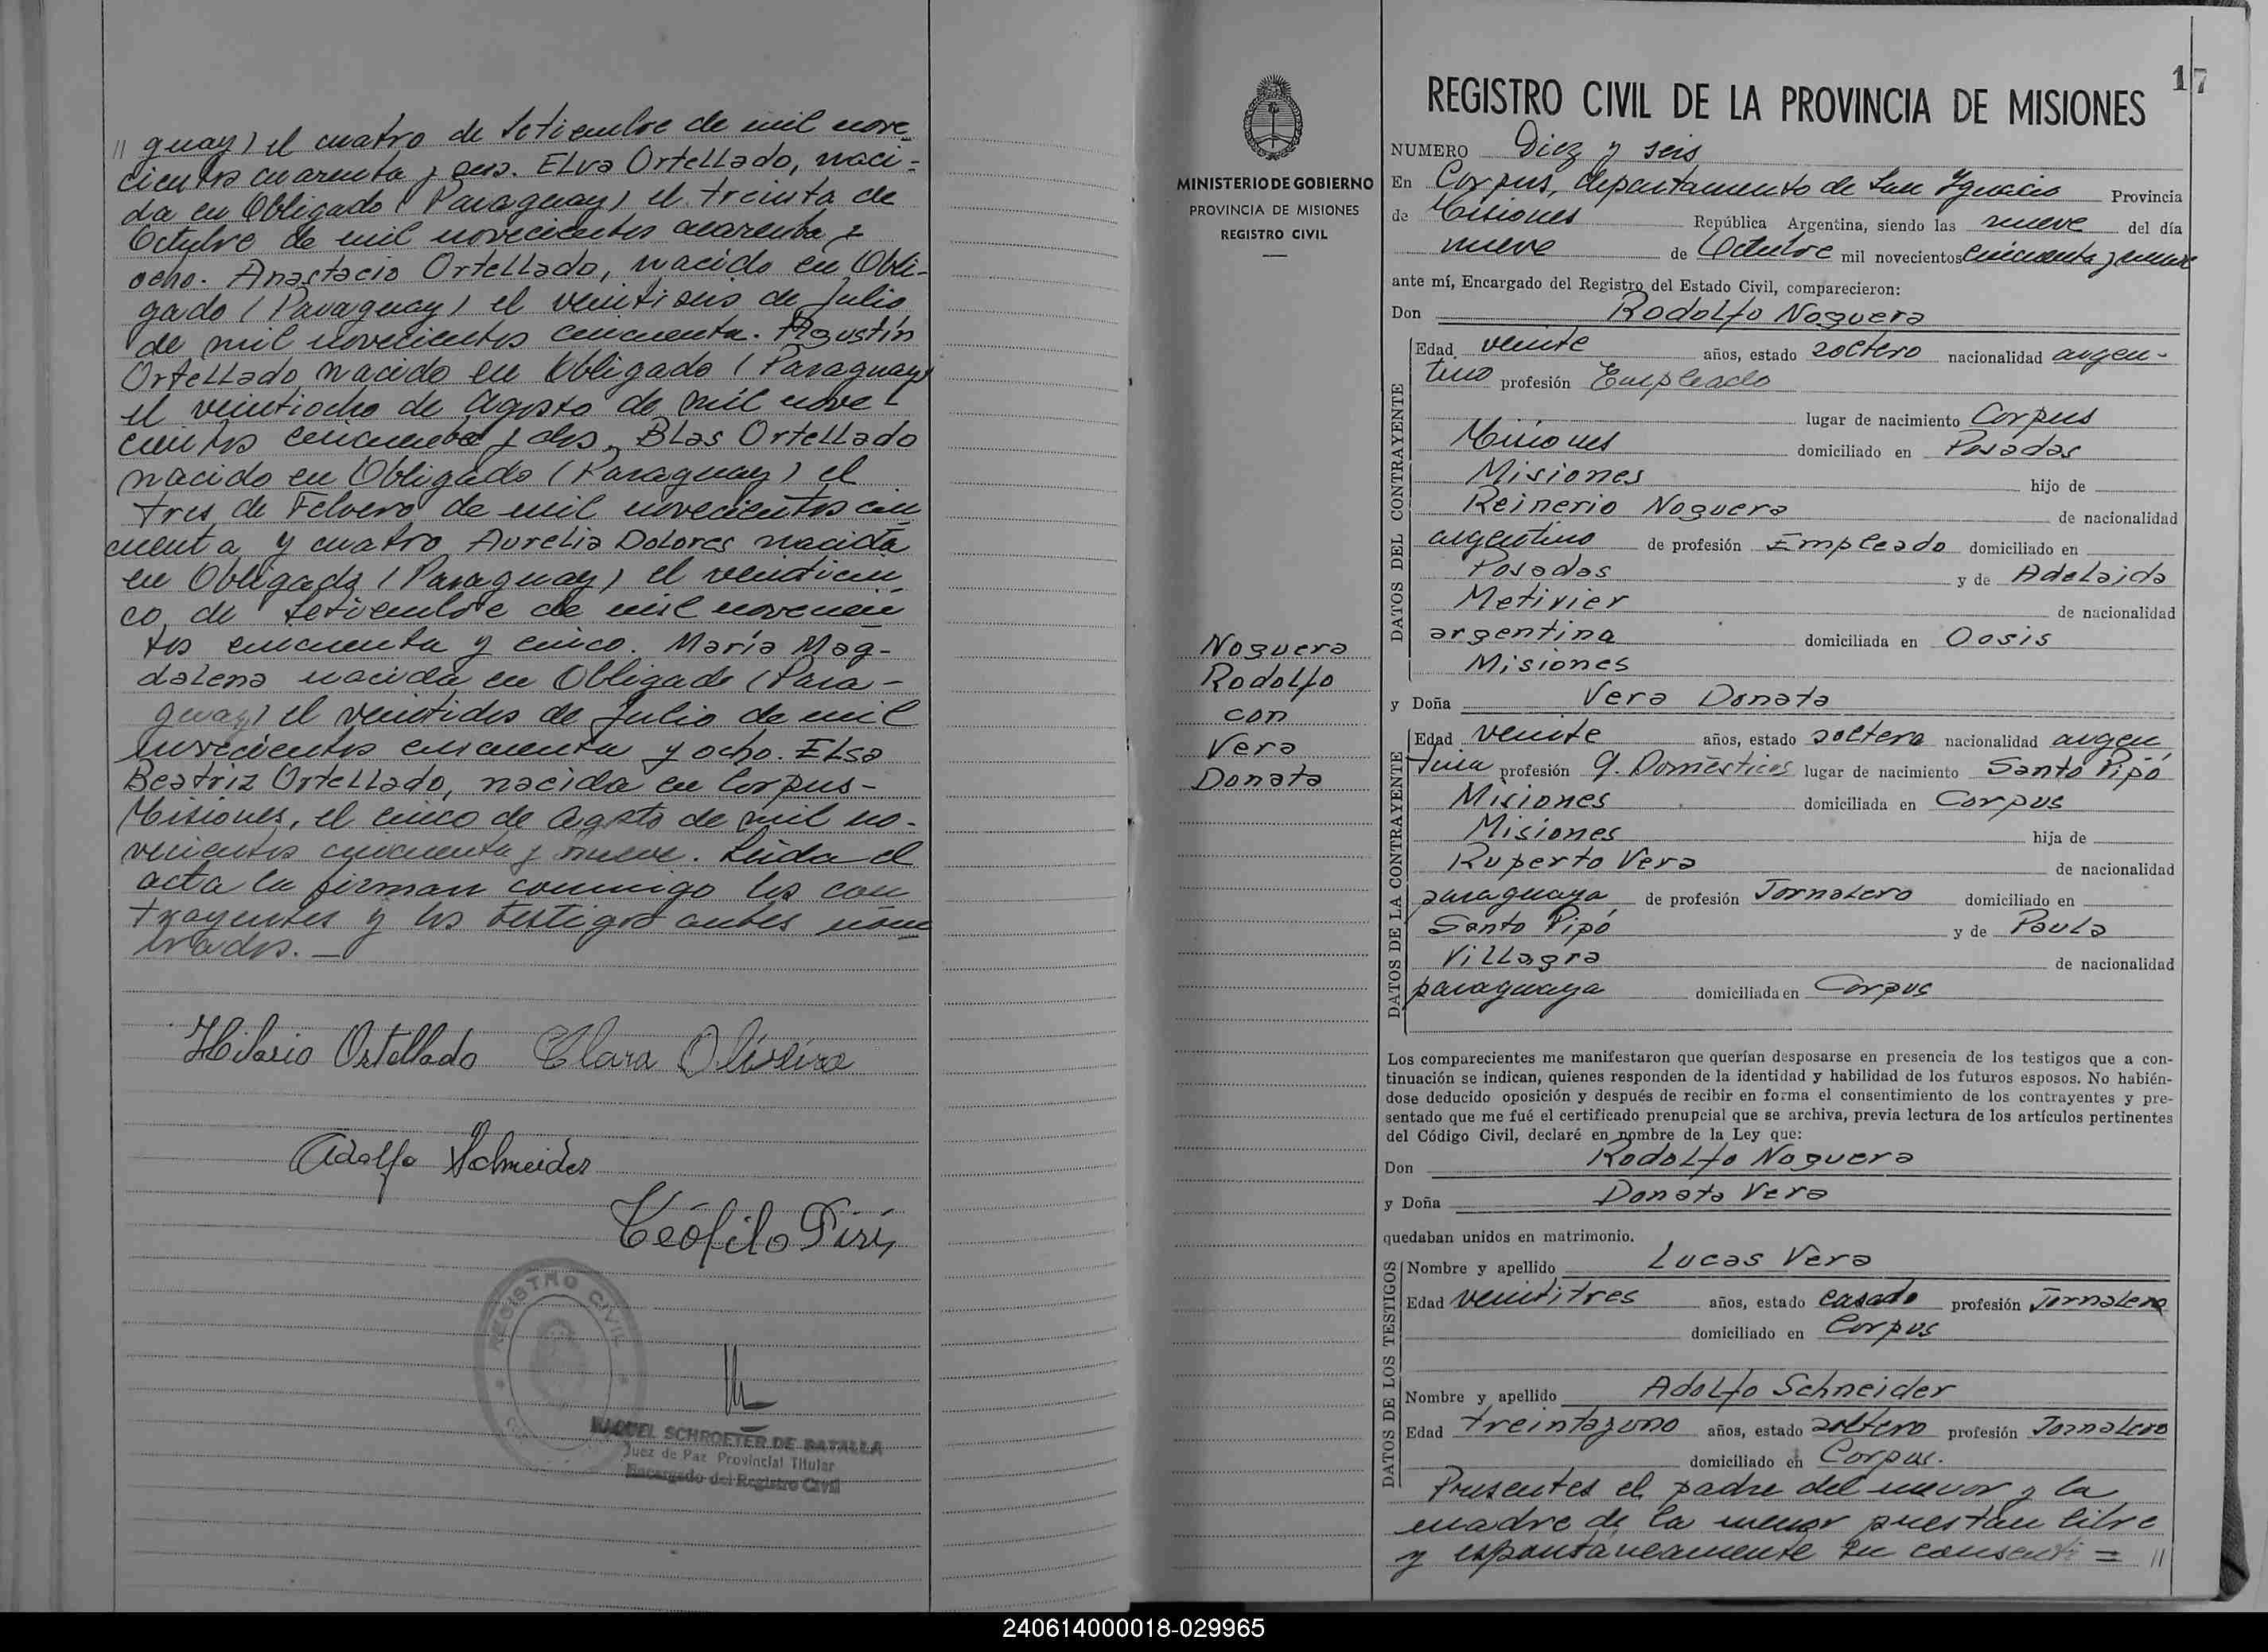 // guay) el cuatro de Setiembre de mil nove
cientos cuarenta y seis. Elva Ortellado, naci-
da en Obligado (Paraguay) el treinta de
Octubre de mil novecientos cuarenta y
ocho. Anastacio Ortellado, nacido en Obli-
gado (Paraguay) el veintiseis de Julio
de mil novecientos cincuenta. Agustín
Ortellado nacido en Obligado (Paraguay)
el veintiocho de Agosto de mil nove-
cientos cincuenta y dos. Blas Ortellado
nacido en Obligado (Paraguay) el
tres de Febrero de mil novecientos cin
cuenta y cuatro Aurelia Dolores nacida
en Obligado (Paraguay) el veinticin
co de Setiembre de mil novecien
tos cincuenta y cinco. María Mag-
dalena nacida en Obligado (Para-
guay) el veintidos de Julio de mil
novecientos cincuenta y ocho. Elsa
Beatriz Ortellado, nacida en Corpus-
Misiones, el cinco de Agosto de mil no-
vecientos cincuenta y nueve. Leida el
acta la firman conmigo los con
trayentes y los testigos antes nom
brados.—
Hilario Ortellado Clara Oliveira
Adolfo Schneider
Teófilo Piris
REGISTRO CIVIL
RAQUEL SCHROETER DE BATALLA
Juez de Paz Provincial Titular
Encargado del Registro Civil
MINISTERIO DE GOBIERNO
PROVINCIA DE MISIONES
REGISTRO CIVIL
Noguera
Rodolfo
con
Vera
Donata
17
REGISTRO CIVIL DE LA PROVINCIA DE MISIONES
NUMERO Diez y seis
En Corpus, departamento de San Ignacio Provincia
de Misiones República Argentina, siendo las nueve del día
nueve de Octubre mil novecientos cincuenta y nueve
ante mí, Encargado del Registro del Estado Civil, comparecieron:
Don Rodolfo Noguera
DATOS DEL CONTRAYENTE
Edad veinte años, estado soltero nacionalidad argen-
tino profesión Empleado
lugar de nacimiento Corpus
Misiones domiciliado en Posadas
Misiones hijo de
Reinerio Noguera de nacionalidad
argentino de profesión Empleado domiciliado en
Posadas y de Adelaida
Metivier de nacionalidad
argentina domiciliada en Oasis
Misiones
y Doña Vera Donata
DATOS DE LA CONTRAYENTE
Edad veinte años, estado soltera nacionalidad argen
tina profesión q. Domésticos lugar de nacimiento Santo Pipó
Misiones domiciliada en Corpus
Misiones hija de
Ruperto Vera de nacionalidad
paraguaya de profesión Jornalero domiciliado en
Santo Pipó y de Paula
Villagra de nacionalidad
paraguaya domiciliada en Corpus
Los comparecientes me manifestaron que querían desposarse en presencia de los testigos que a con-
tinuación se indican, quienes responden de la identidad y habilidad de los futuros esposos. No habién-
dose deducido oposición y después de recibir en forma el consentimiento de los contrayentes y pre-
sentado que me fué el certificado prenupcial que se archiva, previa lectura de los artículos pertinentes
del Código Civil, declaré en nombre de la Ley que:
Don Rodolfo Noguera
y Doña Donata Vera
quedaban unidos en matrimonio.
DATOS DE LOS TESTIGOS
Nombre y apellido Lucas Vera
Edad veintitres años, estado casado profesión Jornalero
domiciliado en Corpus
Nombre y apellido Adolfo Schneider
Edad treintayuno años, estado soltero profesión Jornalero
domiciliado en Corpus.
Presentes el padre del menor y la
madre de la menor prestan libre
y espontáneamente su consenti= //
240614000018-029965